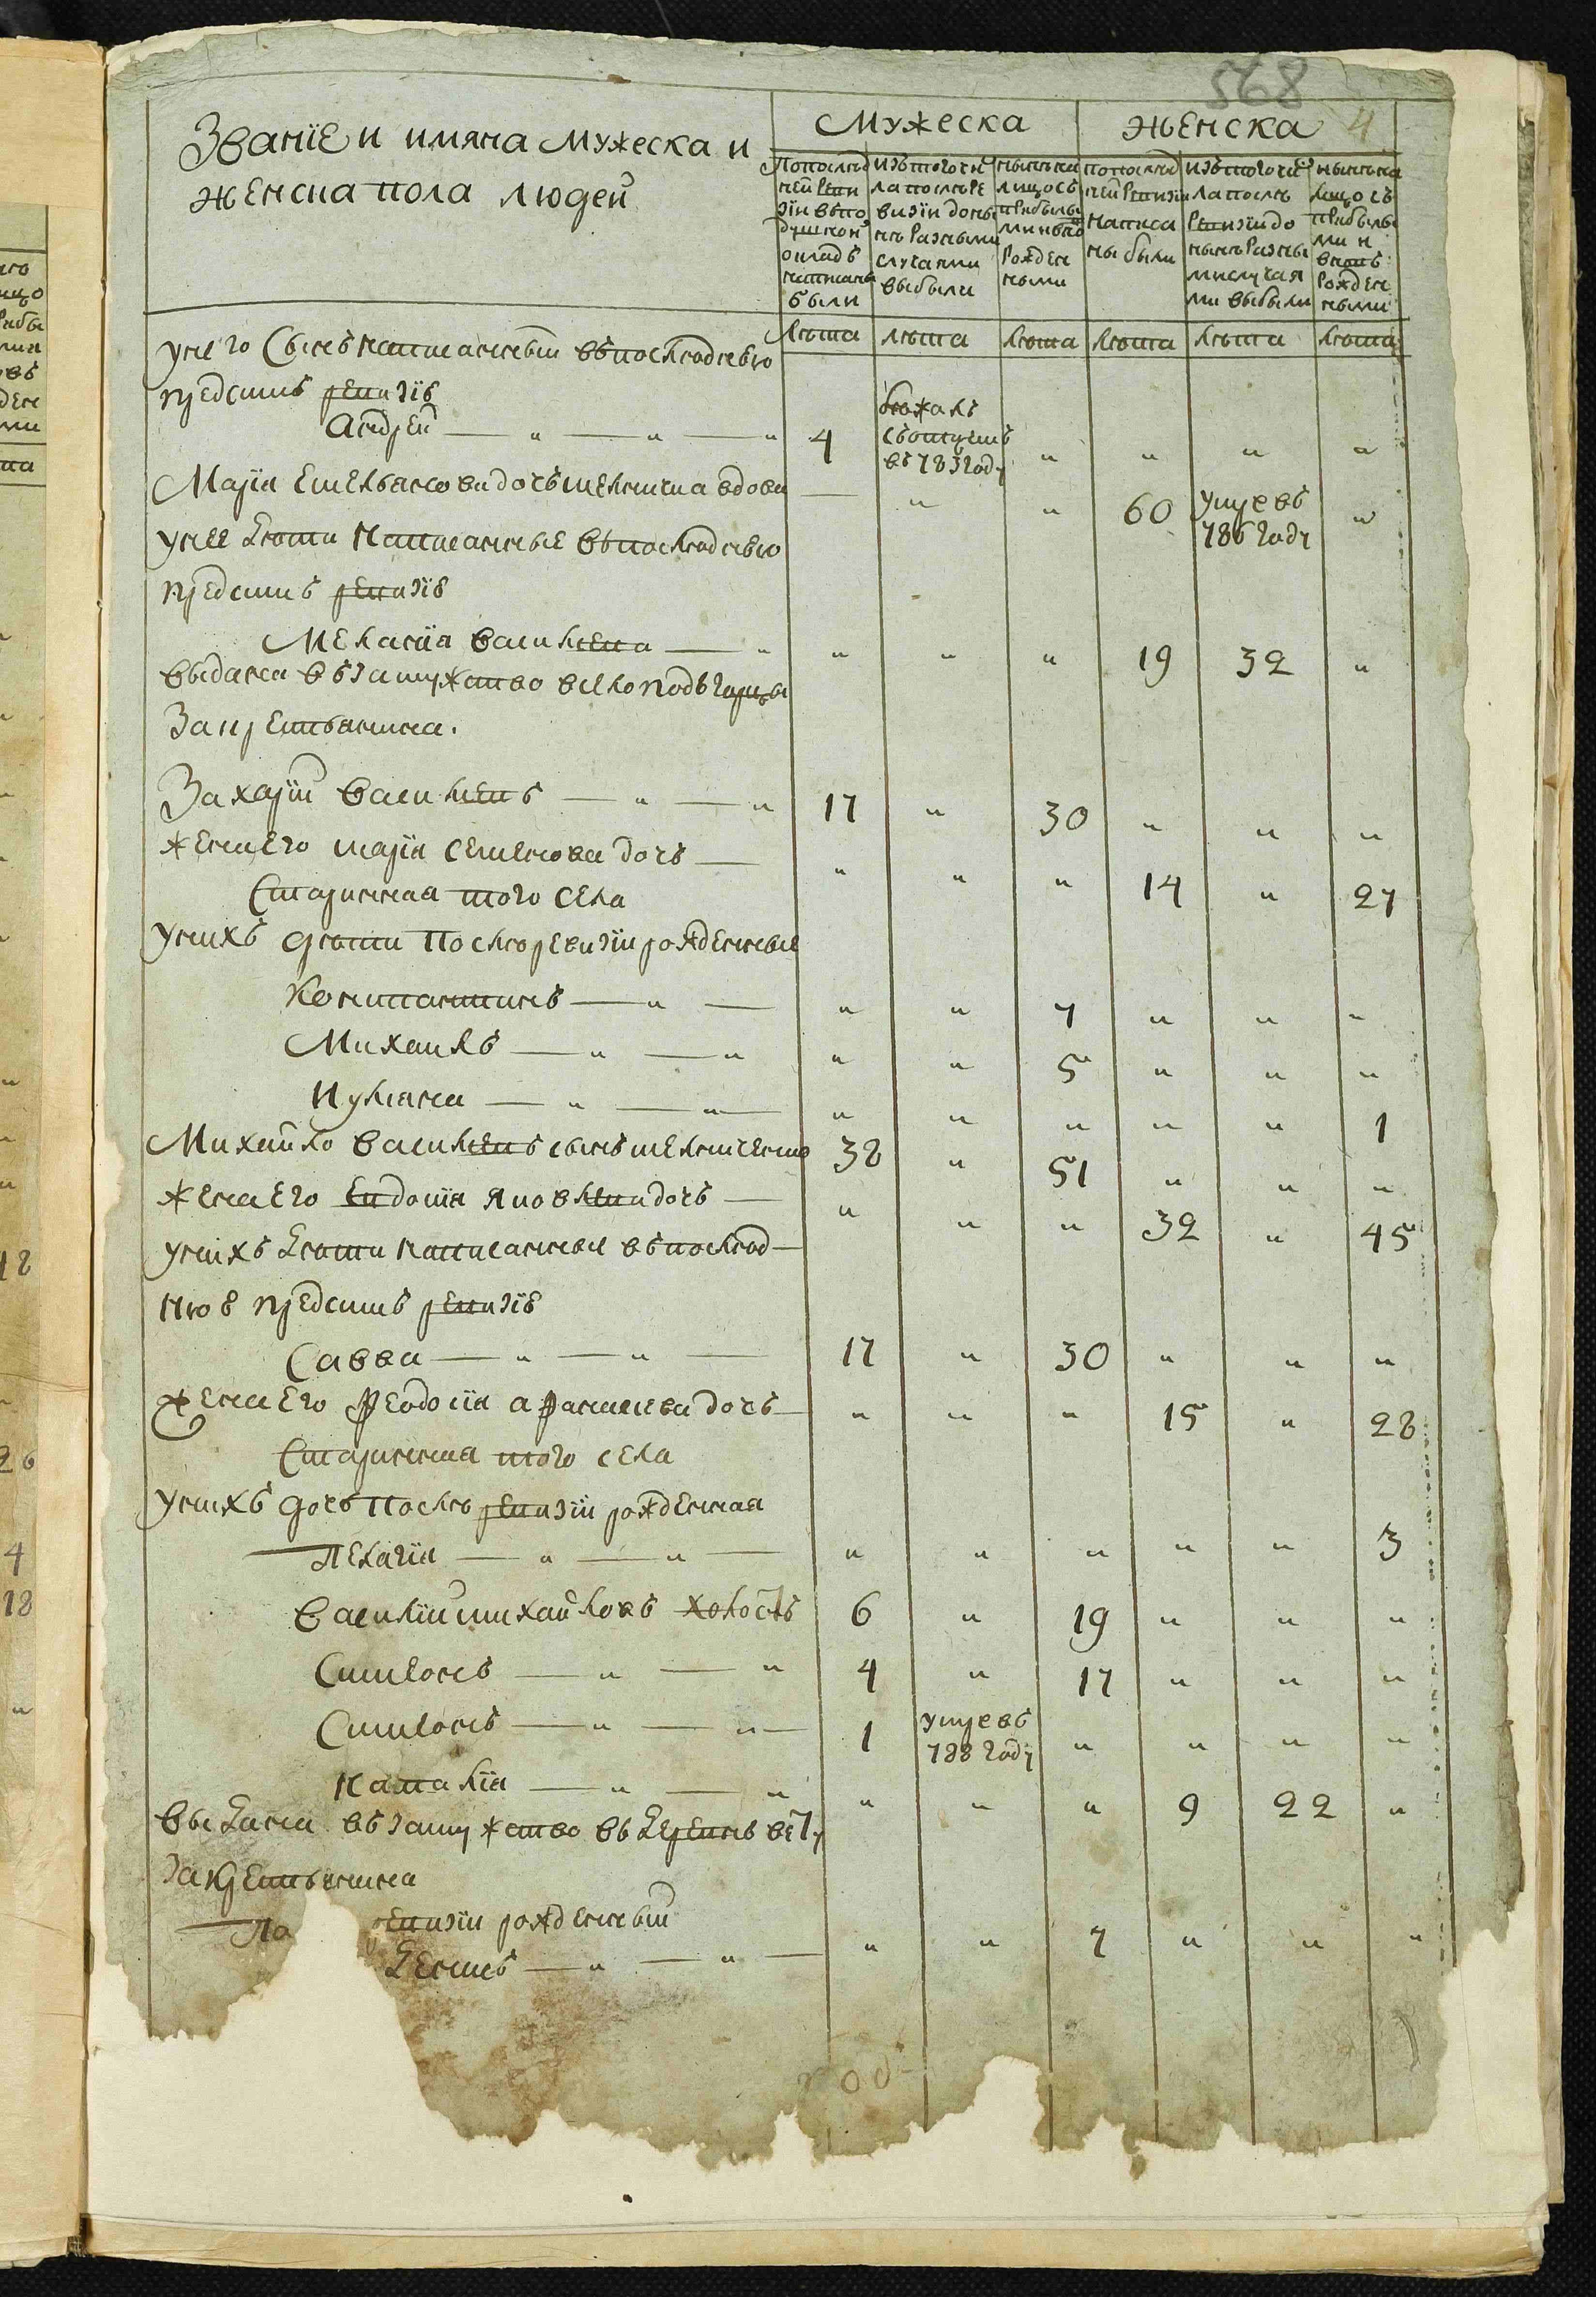 568
4
Званїе и имяна мужеска и
женска пола людей
Мужеска
женска
По послѣд
ней реви
зїи въ по
душной
окладъ
написаны
были
изъ того чи
ла послѣ ре
визїи до ны
нѣ разными
случаями
выбыли
нынѣ на
лицо съ
прибылы
ми и внов
рожден
ными
по послѣд
ней ревизїи
написа
ны были
изъ того чи
ла послѣ
ревизїи до
нынѣ разны
ми случая
ми выбыли
нынѣ на
лицо съ
прибылы
ми и
вновь
рожден
ными
лѣта лѣта лѣта лѣта лѣта лѣта
у него сынъ написанный въ последнею
предсимъ ревизїю
Андрей 4 бежалъ съ отцемъ въ 783 году " " " "
Марїя Емельянова дочь мельника вдова " " 60 умре въ 786 году "
у нее дети написанные въ последнею
предсимъ ревизїю
Меланїя Васильева " " " 19 32 "
выдана въ замужство в село
за крестьянина.
Захарїй Васильевъ 17 " 30 " " "
жена его Марїя Семенова дочь " " " 14 " 27
старинная того села
у нихъ дѣти после ревизїи рожденные
Констанътинъ " " 7 " " "
Михаилъ " " 5 " " "
Нулияна " " " " " 1
Михайло Васильевъ сынъ 38 " 51 " " "
жена его Евдотїя Яковлева дочь " " " 32 " 45
у нихъ дѣти написанные въ послѣд
нюю предсимъ ревизїю
Савва 17 " 30 " " "
жена его Феодосїя Афанасьева дочь " " " 15 " 28
старинная того села
у нихъ дочь после ревизїи рожденная
Пелагїя " " " " " 3
Василїй Михайловъ холостъ 6 " 19 " " "
Симїонъ 4 " 17 " " "
Симїонъ 1 умре въ 788 году " " " "
Наталїя " " " 9 22 "
выдана въ замужство въ деревню
за крестьянина
По ревизїи рожденный
" " 7 " " "